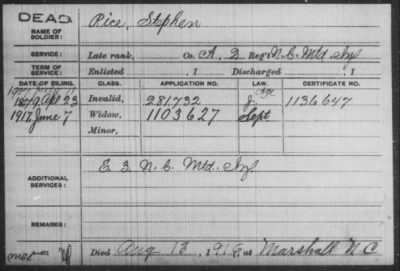 DEAD
NAME OF SOLDIER: Rice, Stephen
SERVICE: Late rank, Co. A, 2 Reg't N.C. Mtd. Inf
TERM OF SERVICE: Enlisted , 1 Discharged , 1
DATE OF FILING. CLASS. APPLICATION NO. LAW. CERTIFICATE NO.
1879 Apl 23 Invalid, 281,732 1136647
1917 June 7 Widow, 1103627 Sept
Minor,
ADDITIONAL SERVICES: E 3 N.C. Mtd. Inf.
REMARKS:
Died Aug 13, 1916, at Marshall N C